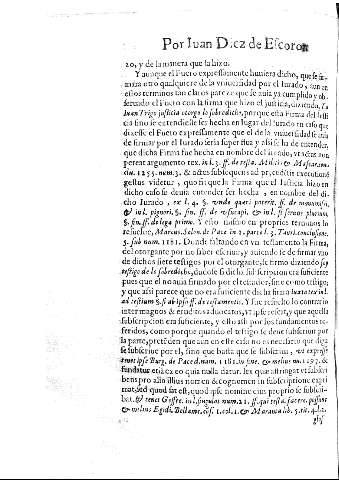 Por Iuan Diez de Escoron
zo, y de la manera que la hizo.
Y aunque el Fuero expressamente huuiera dicho, que se fir-
mara otro qualquiere de la vniuersidad por el Iurado, aun en
essos terminos tan claros parece que auia ya cumplido y ob-
seruado el Fuero con la firma que hizo el justicia, diziendo, Yo
Iuan Trigo justicia otorgo lo sobredicho, porque esta Firma del justi
cia sino se entendiesse ser hecha en lugar del Iurado en caso que
dixesse el Fuero expressamente que el de la vniuersidad se auia
de firmar por el Iurado seria superflua y assi se ha de entender,
que dicha Firma fue hecha en nombre del Iurado, vt actus aun
perent argumento tex. in l. 3. ff. de testa. Milit. &
1255. num. 3. & actus subsequens ad præcedentis executioné
gestus videtur, quo fit que la Firma que el Iusticia hizo en
dicho caso se deuia entender ser hecha, en nombre del di-
cho Iurado, ex l. 4. §.
& in l. pignori, §. fin. ff. de vsucapi. & in l. si seruus plurium,
§. fin. ff. de lega. primo. Y esto mismo en proprios terminos lo
resuelue, Marcus, Selon. de Pace in 1. part. l. 3. Tauri. conclusione.
5. sub num. 1181. Donde faltando en vn testamento la Firma,
del otorgante por no saber escriuir, y auiendose de firmar vno
de dichos siete testigos por el otorgante, se firmo diziendo soy
testigo de lo sobredicho, dudose si dicha subscripcion era suficiente
pues que el no auia firmado por el testador, sino como testigo,
y que assi parece que no era suficiente dicha firma iuxta tex. in l.
ad testium §. si ab ipso ff. de testamentis. Y fue resuelto lo contrario
inter magnos & eruditos aduocatos, vt ipse refert, y que aquella
subscripcion era suficiente, y esto assi por los fundamentos re-
feridos, como porque quando el testigo se deue subscriuir por
la parte, pretenden que aun en este caso no es necessario que diga
se subscriue por el, sino que basta que se subscriua, vt expresse
tenet ipse Burg. de Pace d. num. 1181. in fine. & melius nu. 1297. &
fundatur etiã ex eo quia nulla datur. lex que astringat vt subscri
bens pro alio illius nomen & cognomen in subscriptione expri
mat, sed quod sat est, quod ipse nomine eius proprio se subscri-
bat, & tenet Goffre. in l. singulos num. 21. ff. qui testa. facere. possunt
& melius Egidi. Bellame, cõsi. 1. col. 1. & Maranta lib. 5. tit. 4. l. 2.
glos